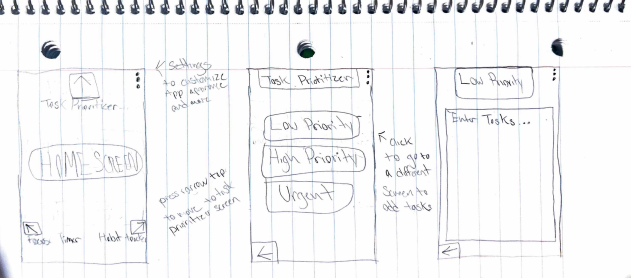 Task Prioritizer...
HOME SCREEN
Focus Timer
Habit Tracker
Settings
to customize
App apperance
and more
press arrow top
to move to task
prioritizer screen
Task Prioritizer
Low Priority
High Priority
Urgent
Click
to go to
a different
Screen to
add tasks
Low Priority
Enter Tasks...